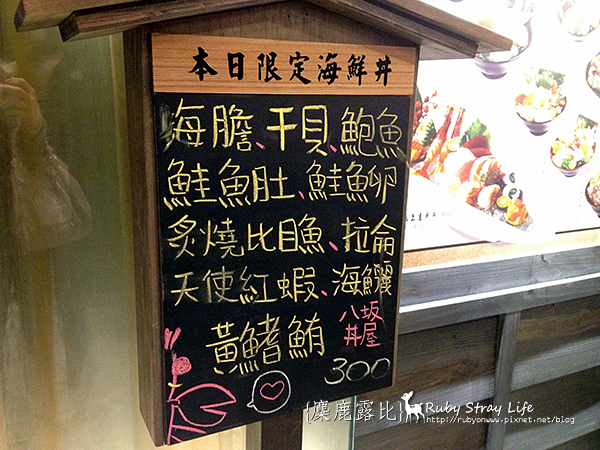 本日限定海鮮丼
海膽、干貝、鮑魚
鮭魚肚、鮭魚卵
炙燒比目魚、拉侖
天使紅蝦、海鱺
黃鰭鮪
八坂
丼屋
300
{麋鹿露比}
Ruby Stray Life
http://rubyonwww.pixnet.net/blog